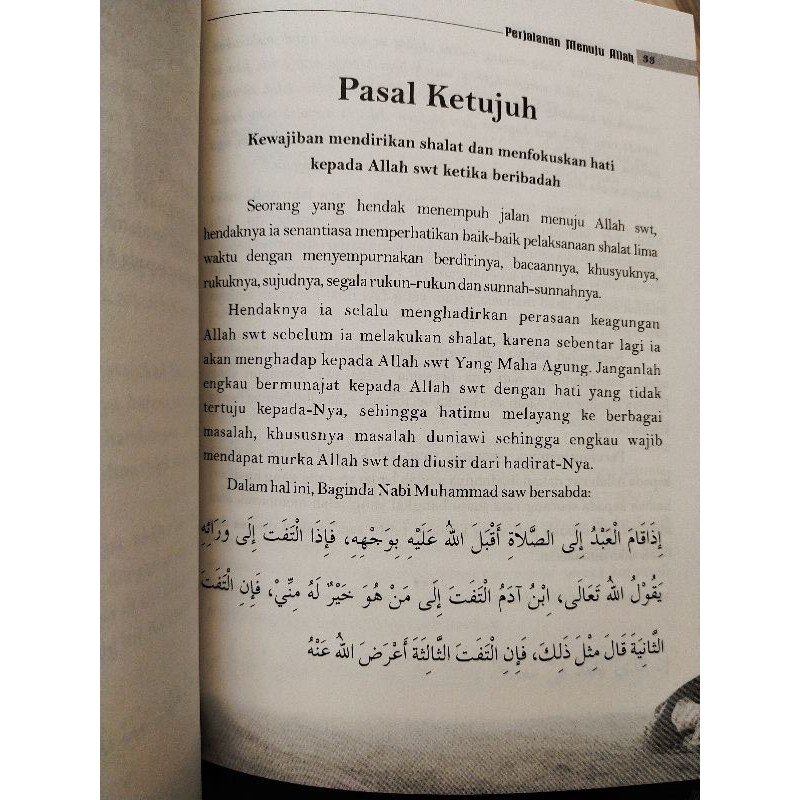 Perjalanan Menuju Allah 33
Pasal Ketujuh
Kewajiban mendirikan shalat dan menfokuskan hati
kepada Allah swt ketika beribadah
Seorang yang hendak menempuh jalan menuju Allah swt,
hendaknya ia senantiasa memperhatikan baik-baik pelaksanaan shalat lima
waktu dengan menyempurnakan berdirinya, bacaannya, khusyuknya,
rukuknya, sujudnya, segala rukun-rukun dan sunnah-sunnahnya.
Hendaknya ia selalu menghadirkan perasaan keagungan
Allah swt sebelum ia melakukan shalat, karena sebentar lagi ia
akan menghadap kepada Allah swt Yang Maha Agung. Janganlah
engkau bermunajat kepada Allah swt dengan hati yang tidak
tertuju kepada-Nya, sehingga hatimu melayang ke berbagai
masalah, khususnya masalah duniawi sehingga engkau wajib
mendapat murka Allah swt dan diusir dari hadirat-Nya.
Dalam hal ini, Baginda Nabi Muhammad saw bersabda:
إِذَاقَامَ الْعَبْدُ إِلَى الصَّلَاةِ أَقْبَلَ اللهُ عَلَيْهِ بِوَجْهِهِ، فَإِذَا الْتَفَتَ إِلَى وَرَائِهِ
يَقُوْلُ اللهُ تَعَالَى، اِبْنُ آدَمُ الْتَفَتَ إِلَى مَنْ هُوَ خَيْرٌ لَهُ مِنِّيْ، فَإِنِ الْتَفَتَ
الثَّانِيَةَ قَالَ مِثْلَ ذَلِكَ، فَإِنِ الْتَفَتَ الثَّالِثَةَ أَعْرَضَ اللهُ عَنْهُ